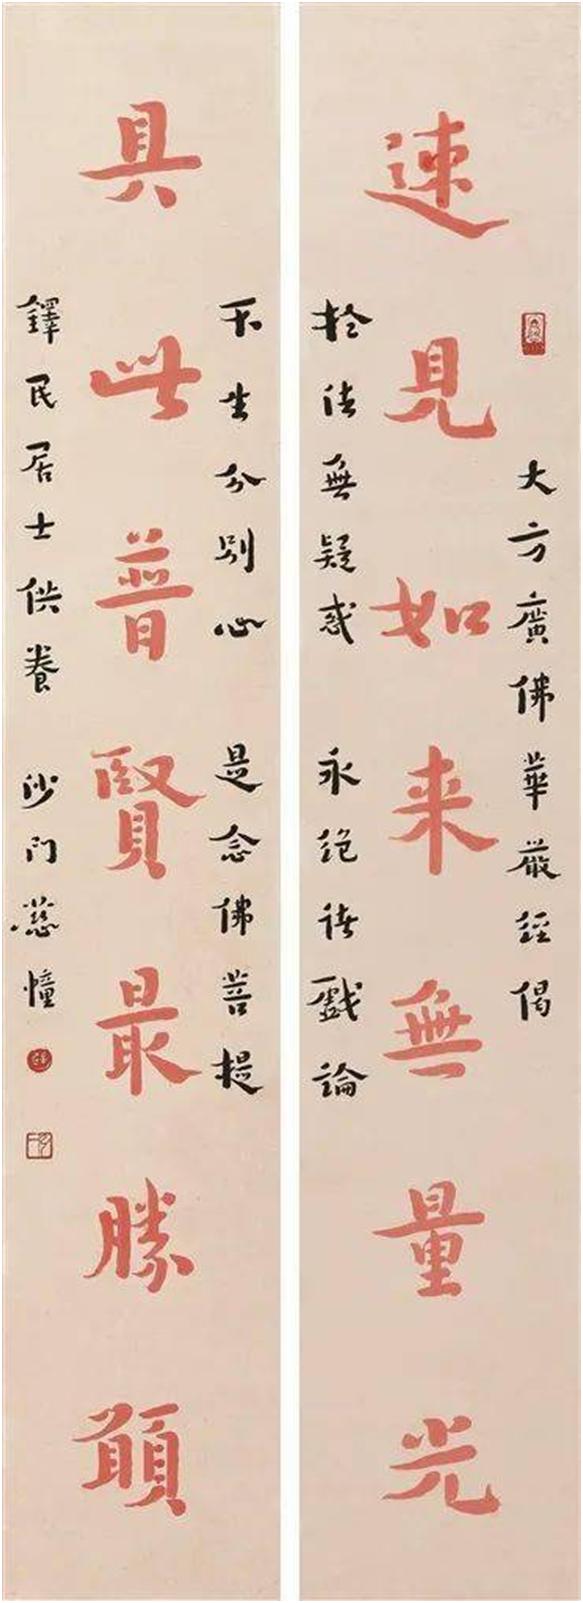 大方廣佛華嚴經偈
速見如来無量光
於法無疑惑 永絕諸戲論
不生分別心 是念佛菩提
具此普賢最勝願
鐸民居士供養 沙門慈幢